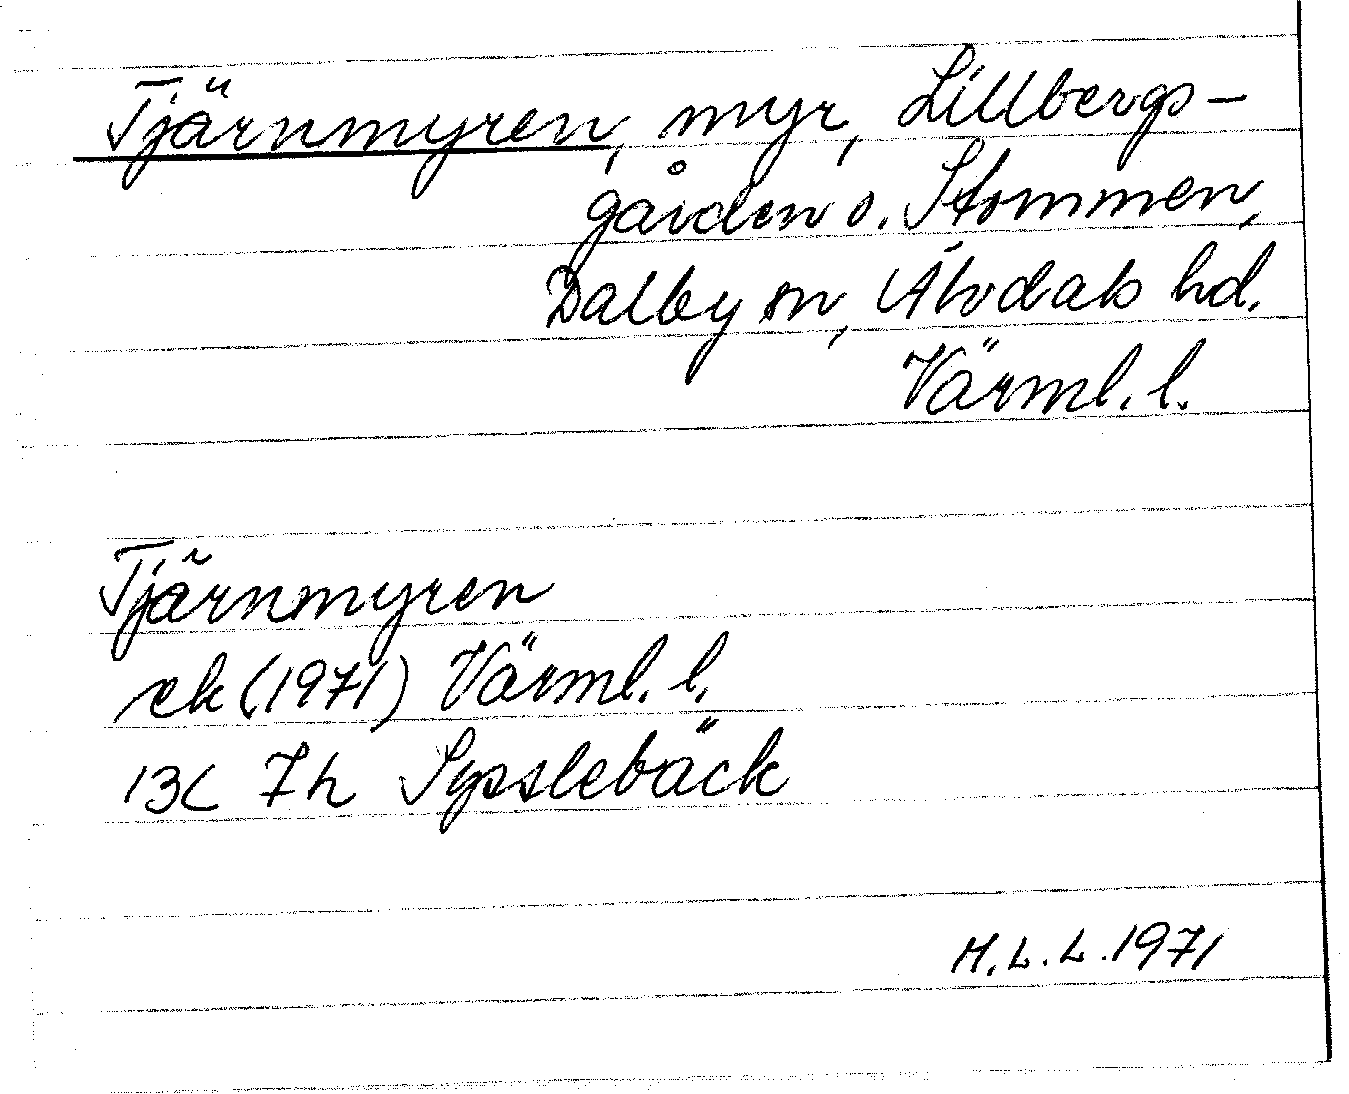 Tjärnmyren, myr, Lillbergs-
gården o. Stommen,
Dalby sn, Älvdals hd.
Värml. l.
Tjärnmyren
ek (1971) Värml. l.
13C 7h Sysslebäck
H.L.L. 1971